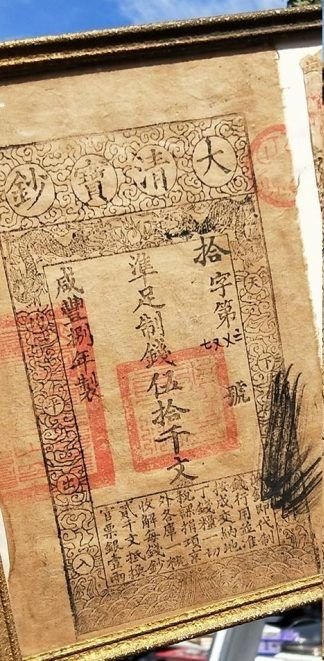 大清寶鈔
拾字第號
準足制錢伍拾千文
咸豐捌年製
天下
平出入
即代制
錢行用並准
按成交納地
丁錢糧一切
稅課捐項京
外各庫一概
收解每錢鈔
貳千文抵換
官票銀壹兩